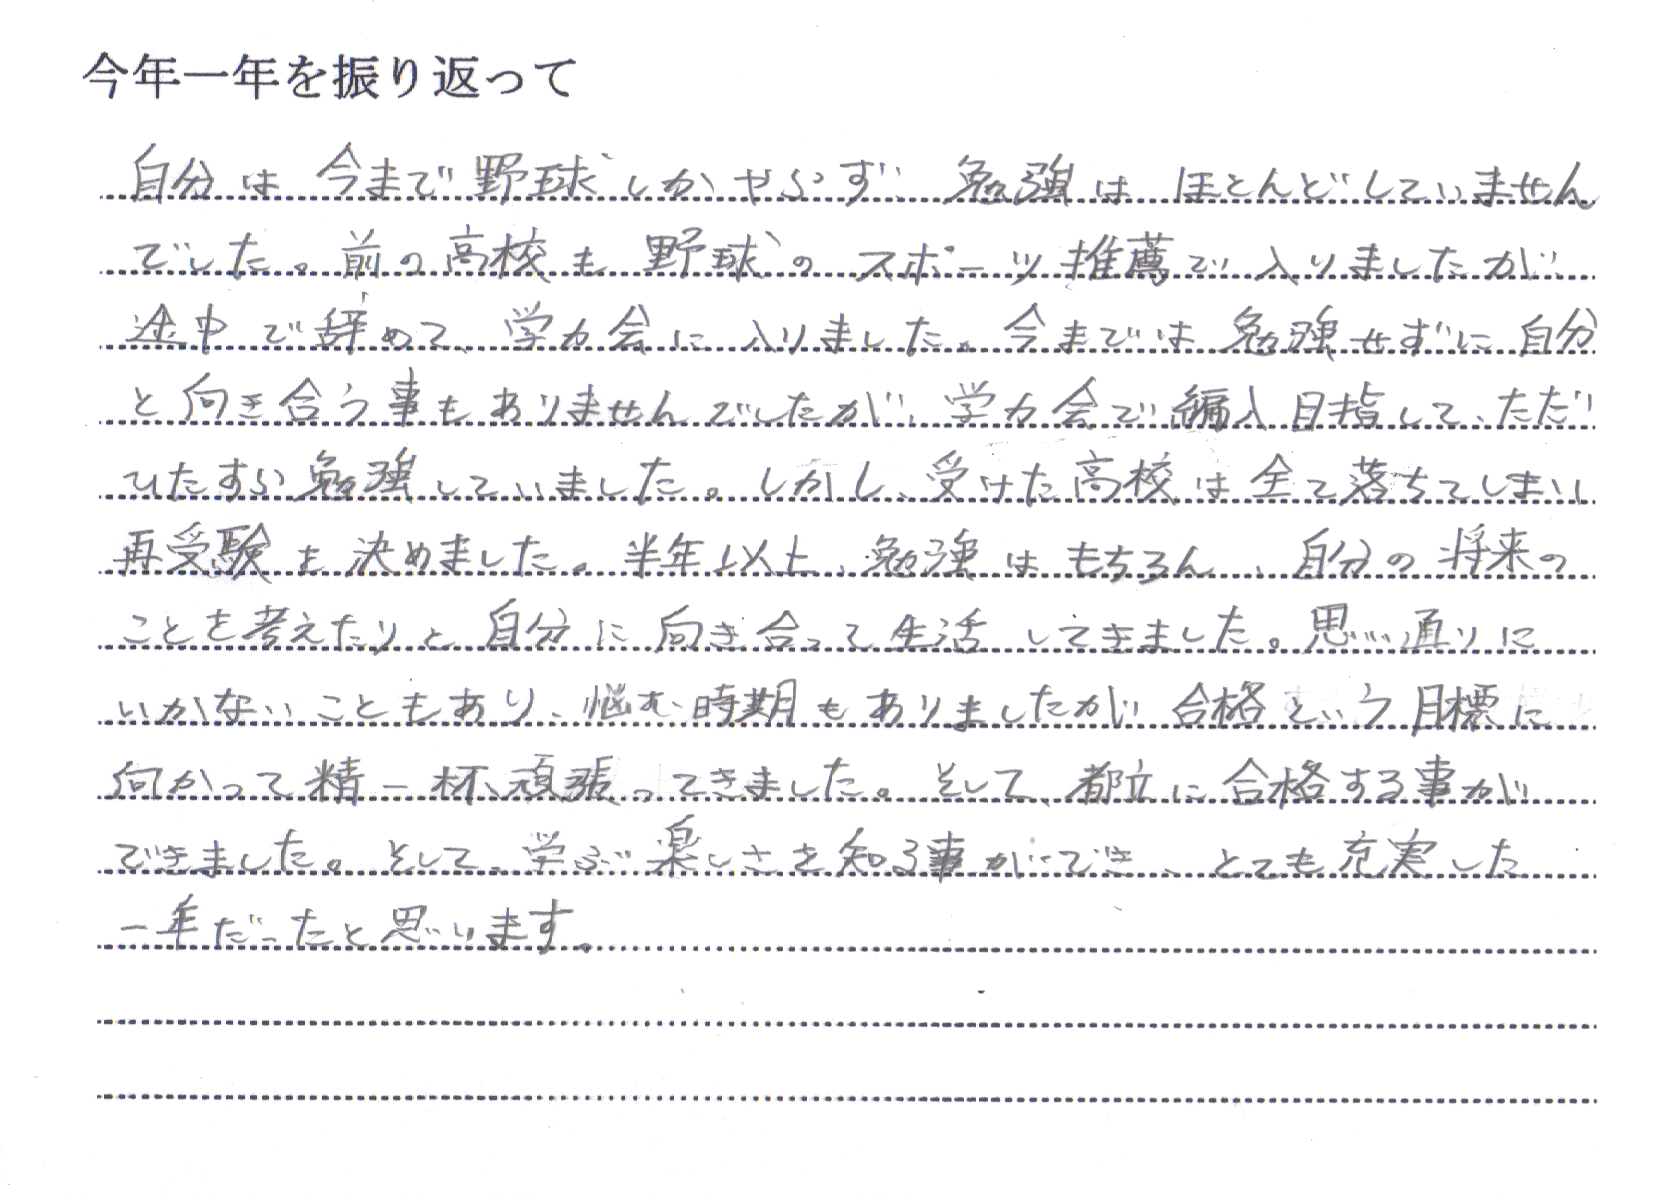 今年一年を振り返って
自分は今まで野球しかやらず、勉強はほとんどしていません
でした。前の高校も野球のスポーツ推薦で入りましたが
途中で辞めて、学力会に入りました。今までは勉強せずに自分
と向き合う事もありませんでしたが、学力会で編入目指して、ただ
ひたすら勉強していました。しかし、受けた高校は全て落ちてしまい
再受験を決めました。半年以上、勉強はもちろん、自分の将来の
ことを考えたりと自分に向き合って生活してきました。思い通りに
いかないこともあり、悩む時期もありましたが合格という目標に
向かって精一杯頑張ってきました。そして、都立に合格する事が
できました。そして、学ぶ楽しさを知る事ができ、とても充実した
一年だったと思います。